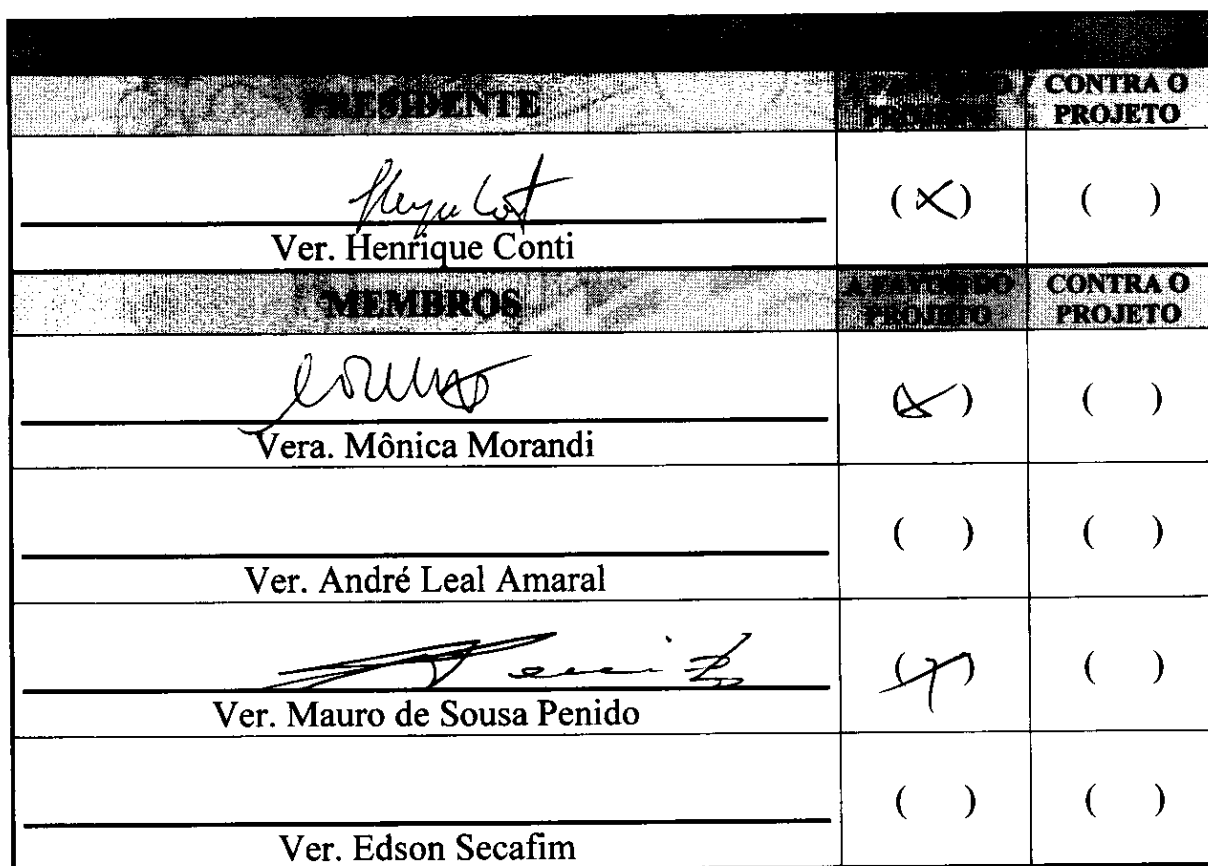 PRESIDENTE
A FAVOR DO PROJETO
CONTRA O PROJETO
(X) ( )
Ver. Henrique Conti
MEMBROS
A FAVOR DO PROJETO
CONTRA O PROJETO
(X) ( )
Vera. Mônica Morandi
( ) ( )
Ver. André Leal Amaral
(X) ( )
Ver. Mauro de Sousa Penido
( ) ( )
Ver. Edson Secafim